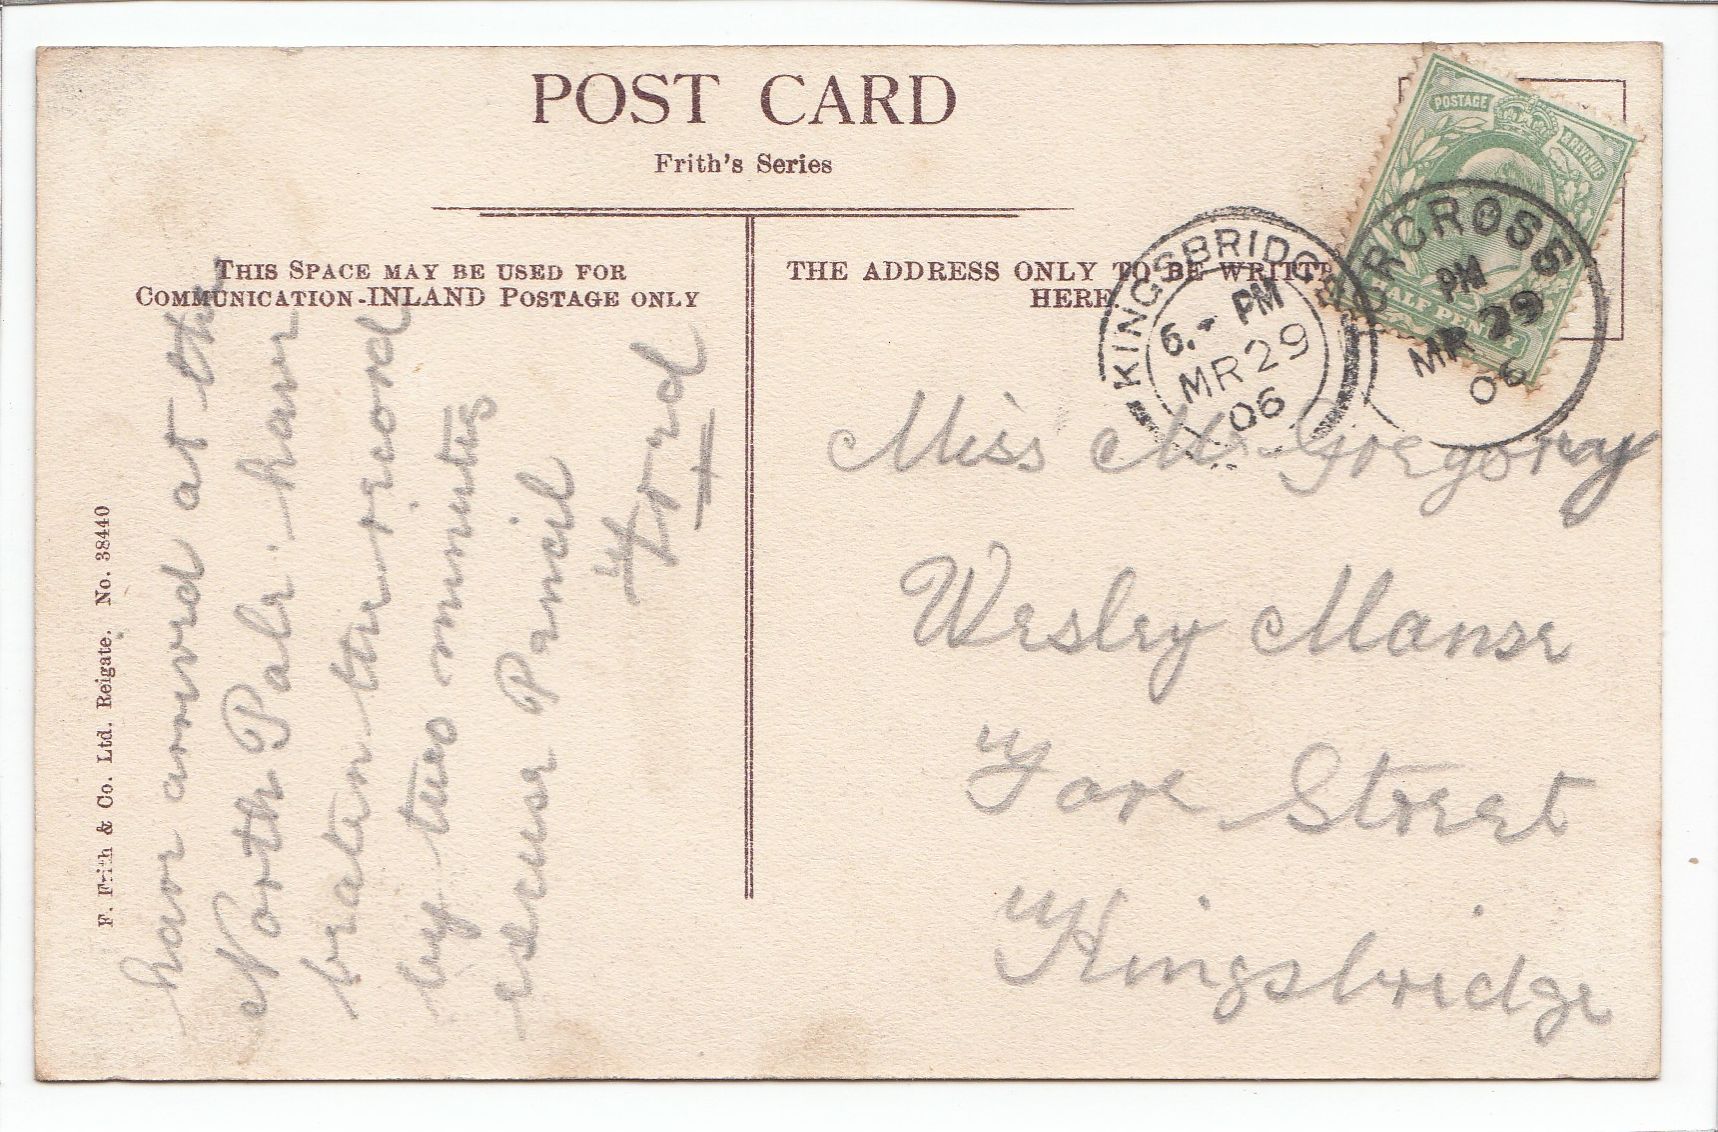 POST CARD
Frith's Series
THIS SPACE MAY BE USED FOR
COMMUNICATION-INLAND POSTAGE ONLY
THE ADDRESS ONLY TO BE WRITTEN
HERE.
POSTAGE & REVENUE
HALF PENNY
KINGSBRIDGE
6.- PM
MR 29
06
TORCROSS
PM
MR 29
06
F. Frith & Co. Ltd. Reigate. No. 38440
have arrived at the
North Pole. have
beaten the record
by two minutes
excuse Pencil
Miss M. Gregory
Wesley Manse
Fore Street
Kingsbridge